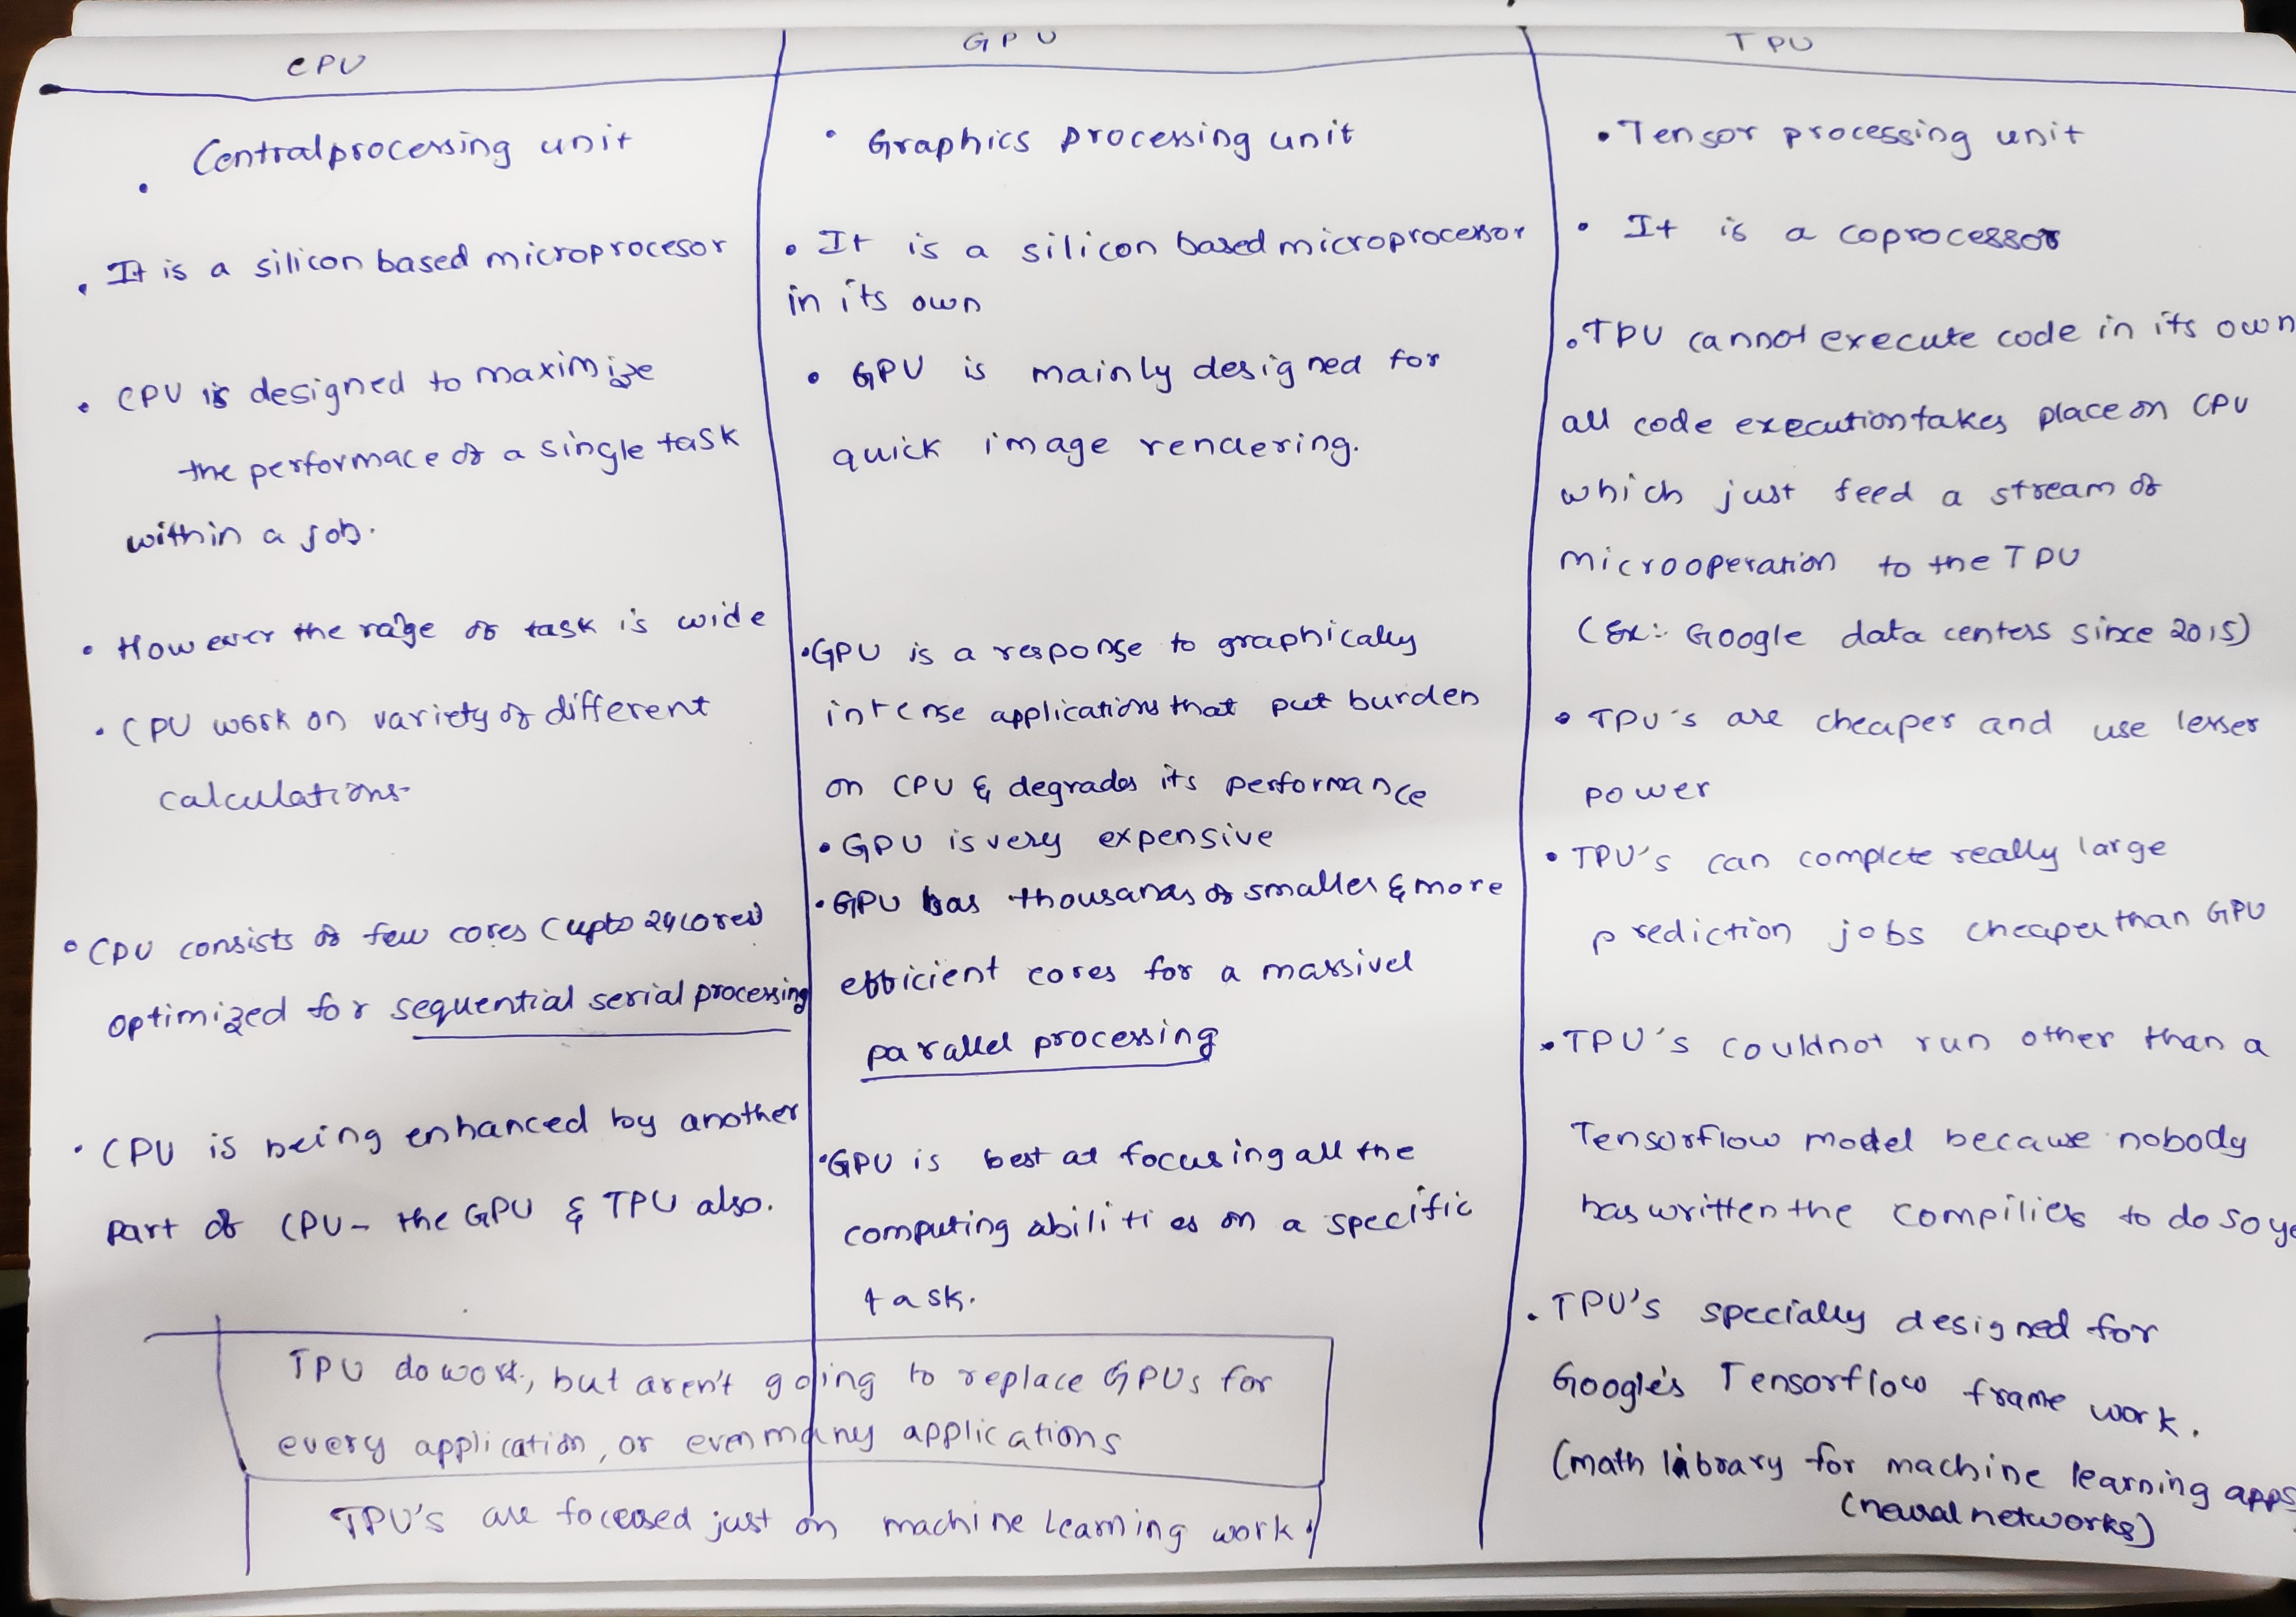 CPU
Centralprocessing unit
• It is a silicon based microprocesor
• CPU is designed to maximize
the performace of a single task
within a job.
• However the range of task is wide
• CPU work on variety of different
calculations.
• CPU consists of few cores (upto 24 cores)
optimized for sequential serial processing
• CPU is being enhanced by another
part of CPU - the GPU & TPU also.
GPU
• Graphics processing unit
• It is a silicon based microprocessor
in its own
• GPU is mainly designed for
quick image rendering.
• GPU is a response to graphically
intense applications that put burden
on CPU & degrades its performance
• GPU is very expensive
• GPU has thousands of smaller & more
efficient cores for a massivel
parallel processing
• GPU is best at focusing all the
computing abilities on a specific
task.
TPU
• Tensor processing unit
• It is a coprocessor
• TPU cannot execute code in its own
all code execution takes place on CPU
which just feed a stream of
microoperation to the TPU
(Ex:- Google data centers since 2015)
• TPU's are cheaper and use lesser
power
• TPU's can complete really large
prediction jobs cheaper than GPU
• TPU's couldnot run other than a
Tensorflow model because nobody
has written the compiliers to do so
• TPU's specially designed for
Google's Tensorflow frame work.
(math library for machine learning apps
(neural networks)
TPU do work, but aren't going to replace GPUs for
every application, or even many applications
TPU's are focused just on machine learning work